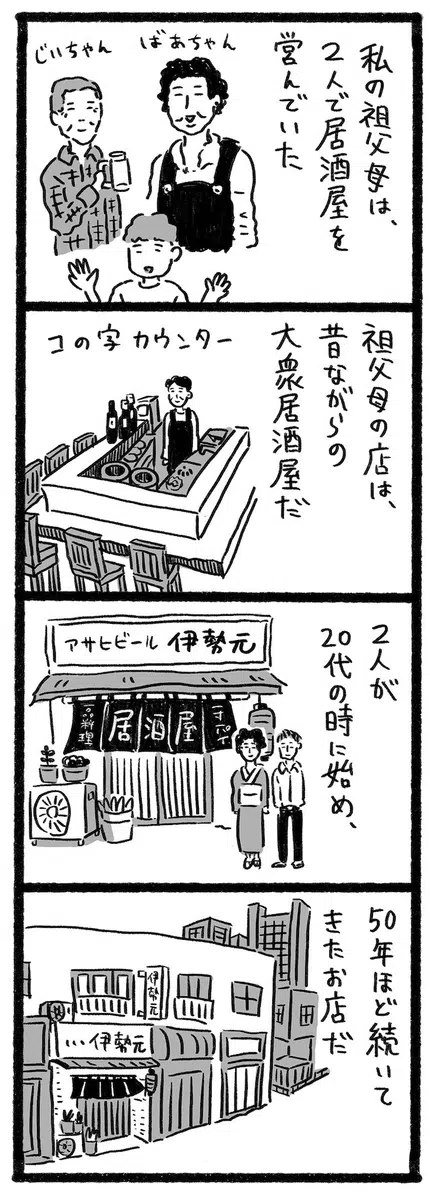 私の祖父母は、
2人で居酒屋を
営んでいた
ばあちゃん
じいちゃん
祖父母の店は、
昔ながらの
大衆居酒屋だ
コの字カウンター
2人が
20代の時に始め、
アサヒビール 伊勢元
一品料理
居酒屋
50年ほど続いて
きたお店だ
伊勢元
…伊勢元